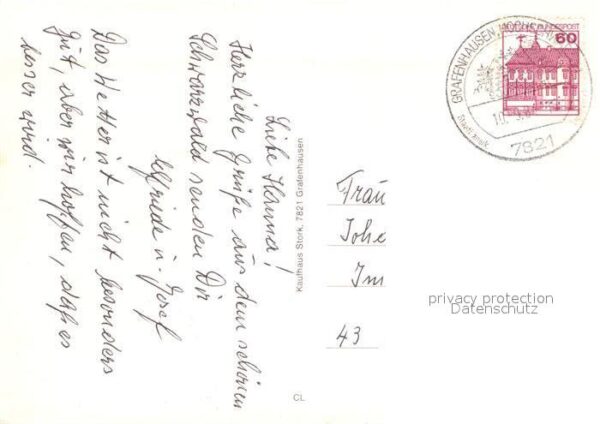 Liebe Hanna!
Herzliche Grüße aus dem schönen
Schwarzwald senden Dir
Elfriede u. Josef
Das Wetter ist nicht besonders
gut, aber wir hoffen, daß es
besser wird
Kaufhaus Stork, 7821 Grafenhausen
CL
GRAFENHAUSEN, HOCHSCHW
7821
DEUTSCHE BUNDESPOST
60
Frau
Johe
Im
43
privacy protection
Datenschutz